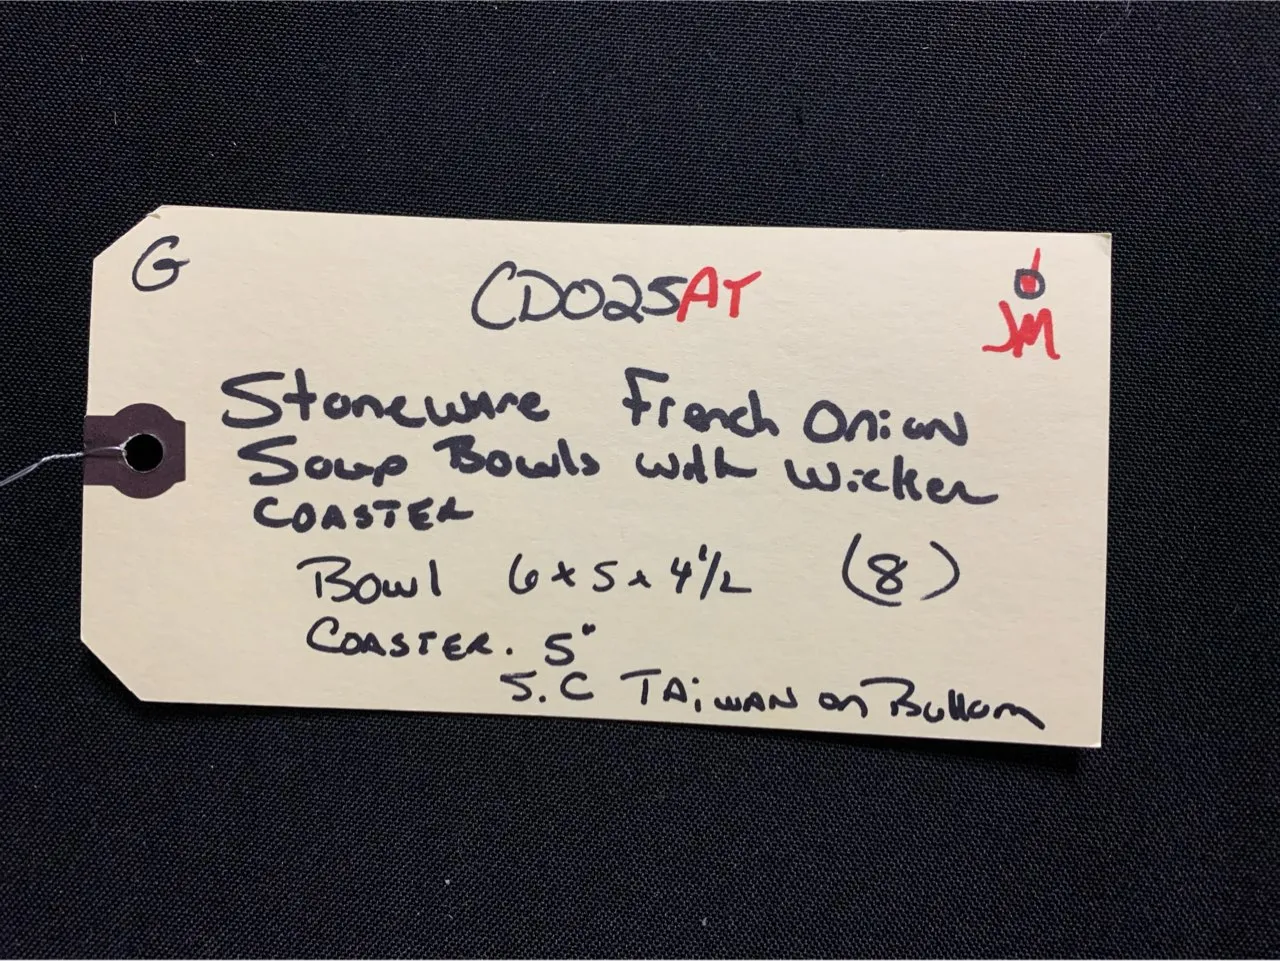 G
CD025AT
JM
Stoneware French Onion
Soup Bowls with Wicker
COASTER
Bowl 6 x 5 x 4 1/2 (8)
COASTER. 5"
S.C TAiWAN on Bottom